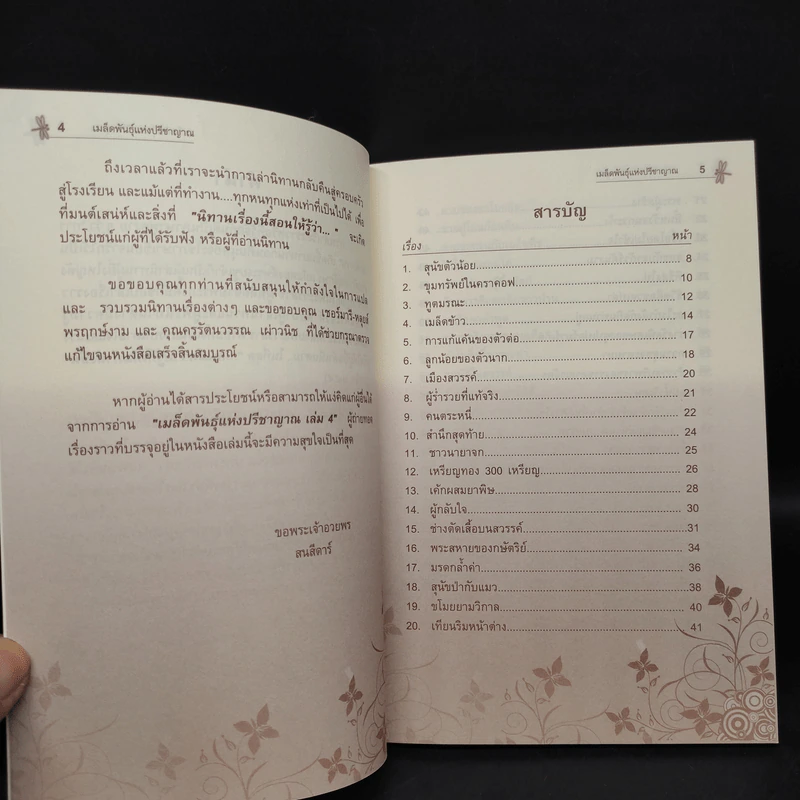 4 เมล็ดพันธุ์แห่งปรีชาญาณ
ถึงเวลาแล้วที่เราจะนำการเล่านิทานกลับคืนสู่ครอบครัว
สู่โรงเรียน และแม้แต่ที่ทำงาน....ทุกหนทุกแห่งเท่าที่เป็นไปได้ เพื่อ
ที่มนต์เสน่ห์และสิ่งที่ "นิทานเรื่องนี้สอนให้รู้ว่า... " จะเกิด
ประโยชน์แก่ผู้ที่ได้รับฟัง หรือผู้ที่อ่านนิทาน
ขอขอบคุณทุกท่านที่สนับสนุนให้กำลังใจในการแปล
และ รวบรวมนิทานเรื่องต่างๆ และขอขอบคุณ เซอร์มารี-หลุยส์
พรฤกษ์งาม และ คุณครูรัตนวรรณ เผ่าวนิช ที่ได้ช่วยกรุณาตรวจ
แก้ไขจนหนังสือเสร็จสิ้นสมบูรณ์
หากผู้อ่านได้สารประโยชน์หรือสามารถให้แง่คิดแก่ผู้อื่นได้
จากการอ่าน "เมล็ดพันธุ์แห่งปรีชาญาณ เล่ม 4" ผู้ถ่ายทอด
เรื่องราวที่บรรจุอยู่ในหนังสือเล่มนี้จะมีความสุขใจเป็นที่สุด
ขอพระเจ้าอวยพร
สนสีดาร์
เมล็ดพันธุ์แห่งปรีชาญาณ 5
สารบัญ
เรื่อง หน้า
1. สุนัขตัวน้อย 8
2. ขุมทรัพย์ในคราคอฟ 10
3. ทูตมรณะ 12
4. เมล็ดข้าว 14
5. การแก้แค้นของตัวต่อ 16
6. ลูกน้อยของตัวนาก 18
7. เมืองสวรรค์ 20
8. ผู้ร่ำรวยที่แท้จริง 21
9. คนตระหนี่ 22
10. สำนึกสุดท้าย 24
11. ชาวนายาจก 25
12. เหรียญทอง 300 เหรียญ 26
13. เค้กผสมยาพิษ 28
14. ผู้กลับใจ 30
15. ช่างตัดเสื้อบนสวรรค์ 31
16. พระสหายของกษัตริย์ 34
17. มรดกล้ำค่า 36
18. สุนัขป่ากับแมว 38
19. ขโมยยามวิกาล 40
20. เทียนริมหน้าต่าง 41